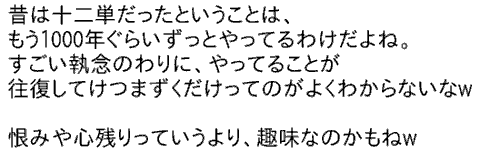 昔は十二単だったということは、
もう1000年ぐらいずっとやってるわけだよね。
すごい執念のわりに、やってることが
往復してけつまずくだけってのがよくわからないなw
恨みや心残りっていうより、趣味なのかもねw